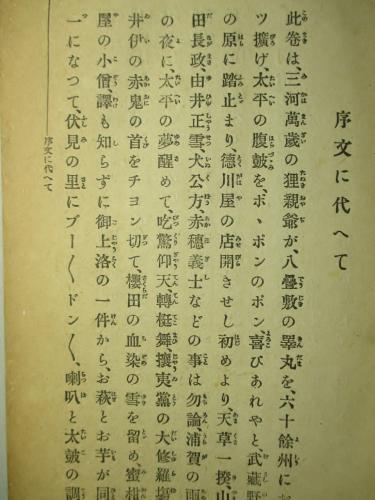 序文に代へて
此卷は、三河萬歲の狸親爺が、八疊敷の睾丸を、六十餘州に
ツ擴げ、太平の腹皷を、ポヽポンのポン喜びあれやと、武藏野
の原に踏止まり、德川屋の店開きせし初めより、天草一揆、山
田長政、由井正雪、犬公方、赤穗義士などの事は勿論、浦賀の雨
の夜に、太平の夢醒めて、吃驚仰天、轉梃舞、攘夷黨の大修羅場
井伊の赤鬼の首をチヨン切て、櫻田の血染の雪を留め蜜柑
屋の小僧譯も知らずに御上洛の一件から、お萩とお芋が同
一になつて、伏見の里にブー〳〵ドン〳〵、喇叭と太皷の調
序文に代へて